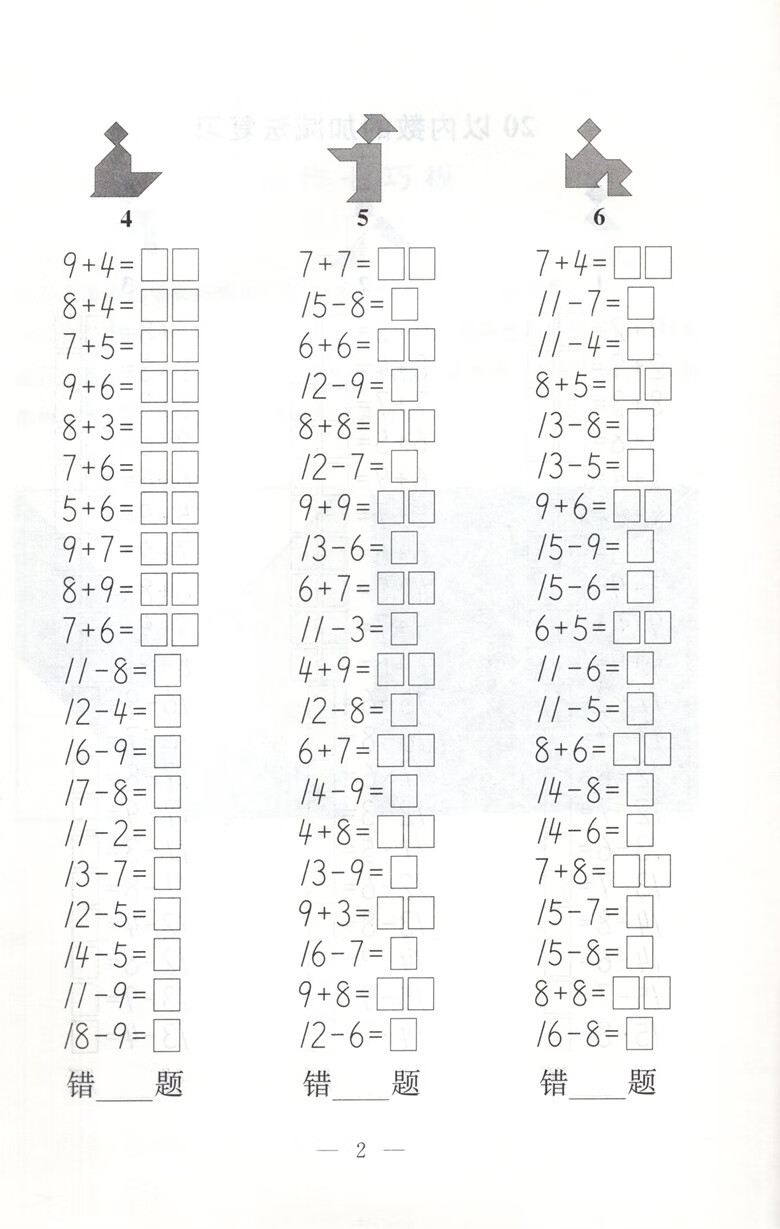 4
9+4=
8+4=
7+5=
9+6=
8+3=
7+6=
5+6=
9+7=
8+9=
7+6=
11-8=
12-4=
16-9=
17-8=
11-2=
13-7=
12-5=
14-5=
11-9=
18-9=
错____题
5
7+7=
15-8=
6+6=
12-9=
8+8=
12-7=
9+9=
13-6=
6+7=
11-3=
4+9=
12-8=
6+7=
14-9=
4+8=
13-9=
9+3=
16-7=
9+8=
12-6=
错____题
6
7+4=
11-7=
11-4=
8+5=
13-8=
13-5=
9+6=
15-9=
15-6=
6+5=
11-6=
11-5=
8+6=
14-8=
14-6=
7+8=
15-7=
15-8=
8+8=
16-8=
错____题
— 2 —